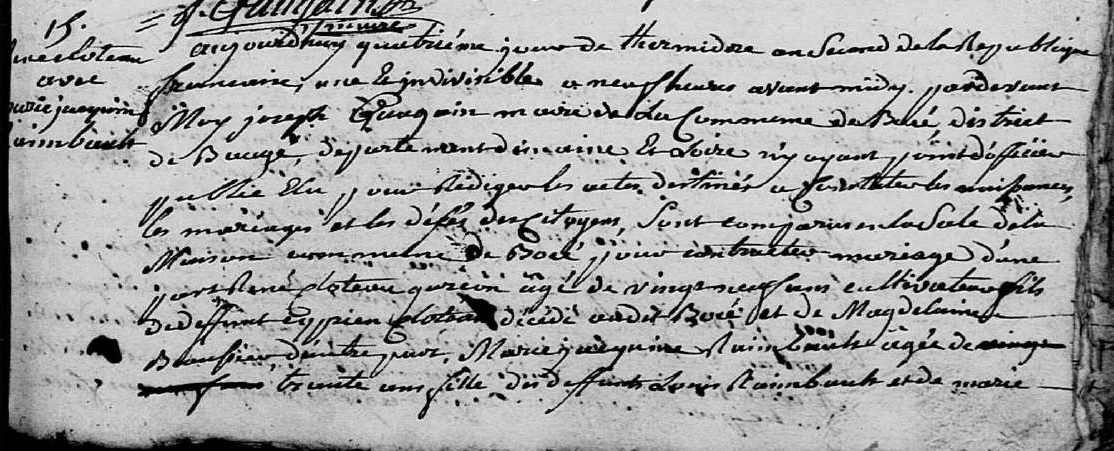 15.
= J. Gaugain
maire
René Cloteau
avec
Marie jacquine
Raimbault
aujourdhuy quatriéme jour de thermidore an Second de la Republique
francaise, une Et indivisible a neuf heures avant midy. pardevant
Moy joseph Gaugain maire de La Commune de Bocé, district
de Baugé, departement de maine Et Loire n'y ayant point d'officier
publie Elu pour Rediger les actes destinés a Constater les naissances,
les mariages et les déses des Citoyens, Sont comparus en la Sale de la
Maison commune de Bocé, pour contracter mariage d'une
part René Cloteau garcon agé de vingt neuf ans cultivateur fils
de deffunt cyppien Cloteau décédé audit Bocé et de Magdelaine
d'autre part, Marie jacquine Raimbault agée de vingt
trente ans fille des deffunts Louis Raimbault et de marie